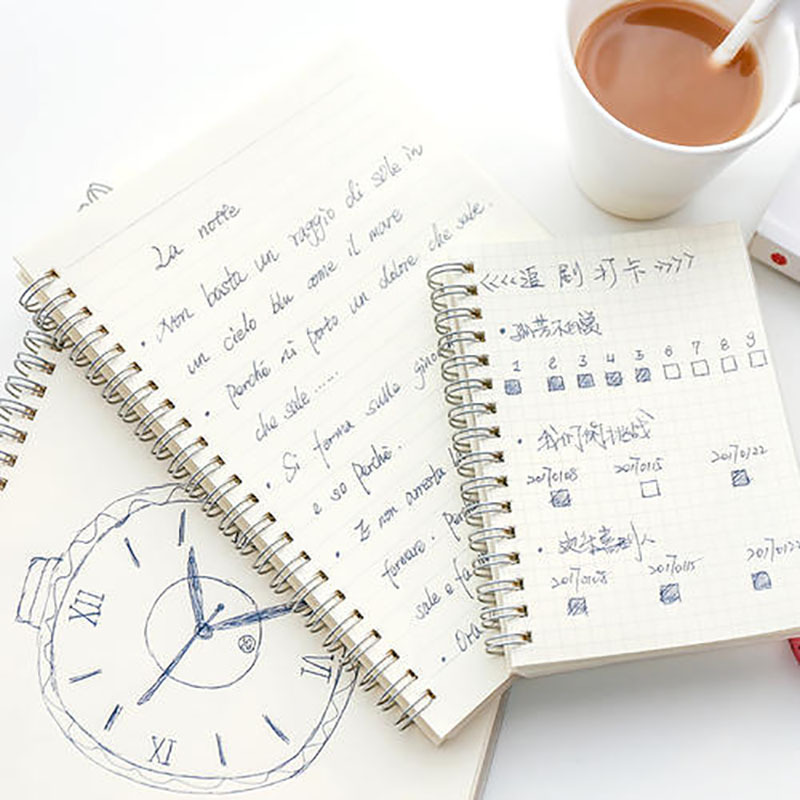 La notte
• Non basta un raggio di sole in
un cielo blu come il mare
• Perché mi porto un dolore che sale.
che sale.....
• Si ferma sulle gino
e so perché.
• E non arresta l
fermare. Per
sale e fa
• Ora
<<<<追剧打卡>>>>
1 2 3 4 5 6 7 8 9
• 我们
20170108 20170115 20170122
20170108 20170115 2017012
XII
VI
IX